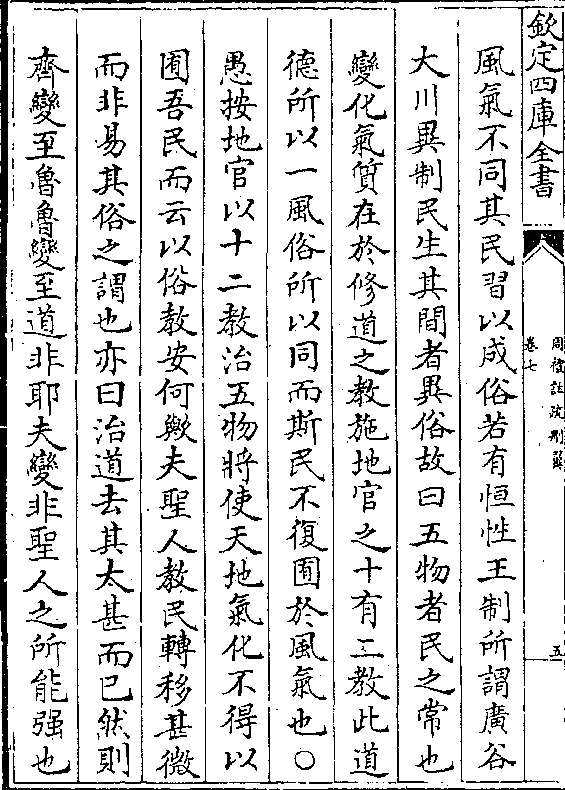 欽定四庫全書
周禮註疏刪翼
卷七
五
風氣不同其民習以成俗若有恒性王制所謂廣谷
大川異制民生其間者異俗故曰五物者民之常也
變化氣質在於修道之教施地官之十有二教此道
德所以一風俗所以同而斯民不復囿於風氣也〇
愚按地官以十二教治五物將使天地氣化不得以
囿吾民而云以俗教安何歟夫聖人教民轉移甚微
而非易其俗之謂也亦曰治道去其太甚而已然則
齊變至魯魯變至道非耶夫變非聖人之所能强也